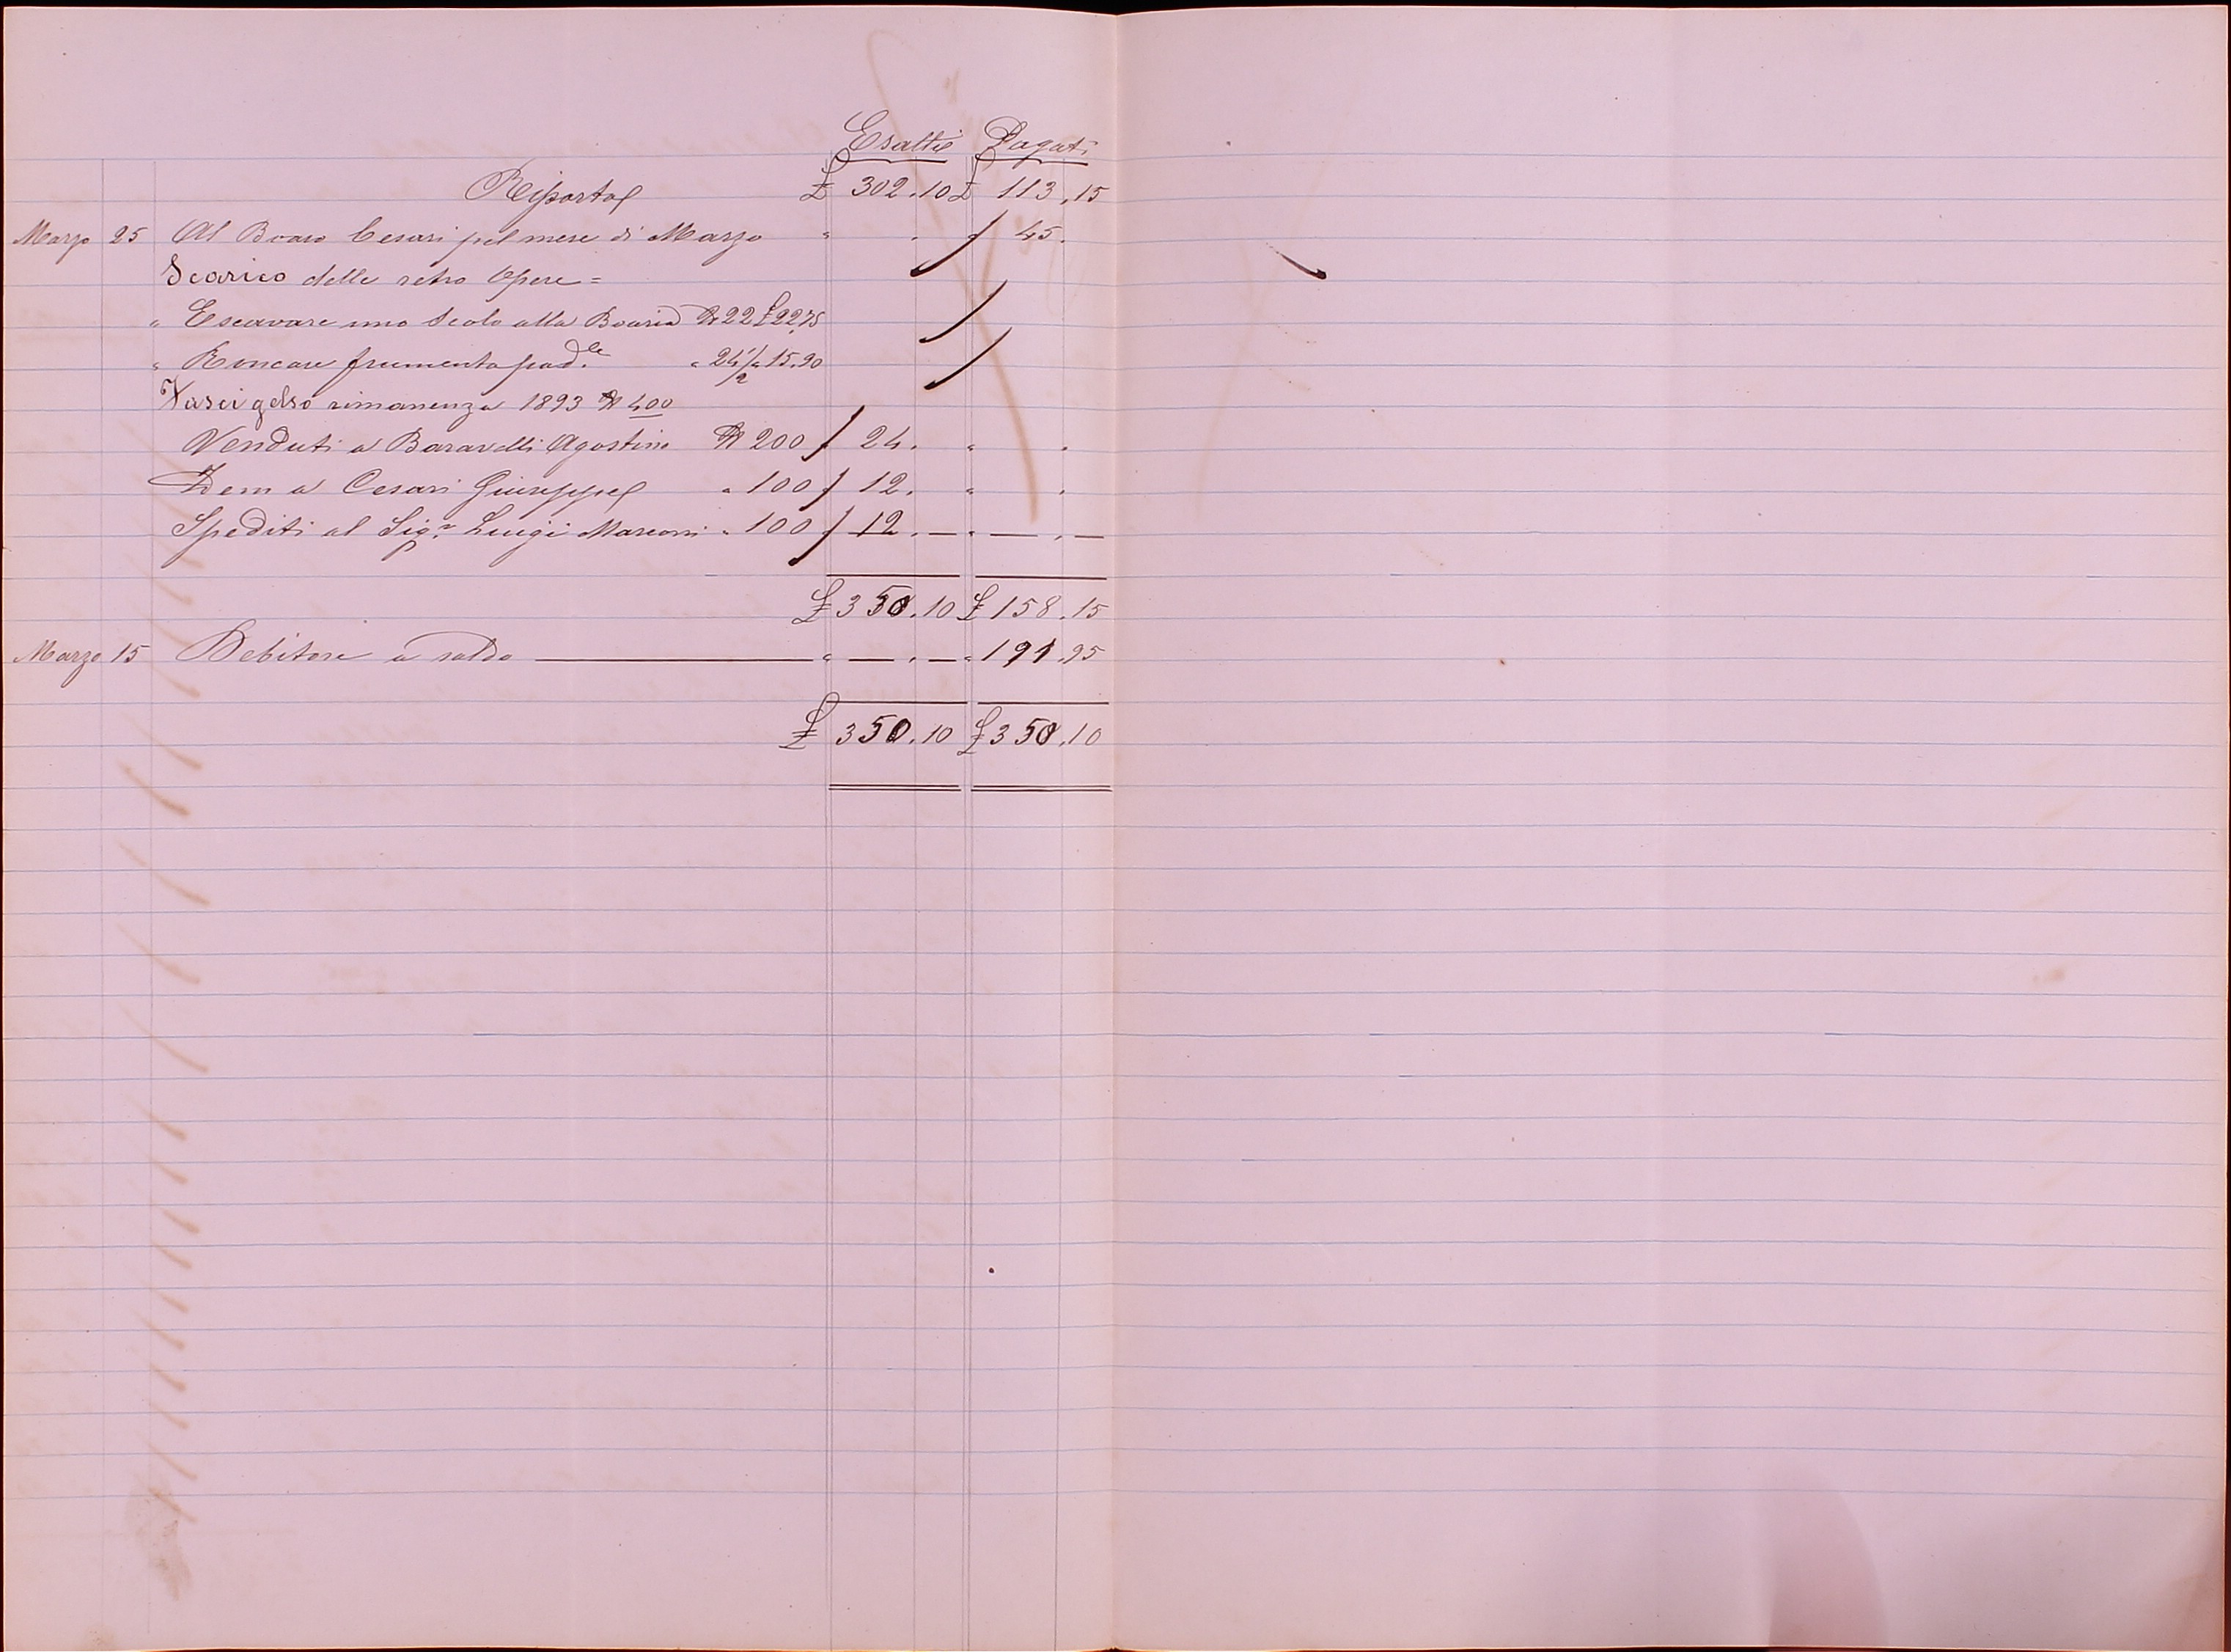 Esatti Pagati
Riporto £ 302.10 £ 113.15
Marzo 25 Al Boaro Cesari pel mese di Marzo " . " 45.
Scarico delle retro Opere =
" Escavare uno Scolo alla Boaria N 22 £ 22.75
" Roncare frumento pad.le " 24 1/2 " 15.90
Fasci gelso rimanenza 1893 N 400
Venduti a Baravelli Agostino N 200 " 24. " .
Idem a Cesari Giuseppe " 100 " 12. " .
Spediti al Sig.r Luigi Marconi " 100 " 12.— " —.—
£ 350.10 £ 158.15
Marzo 15 Debitore a saldo — " —.— " 191.95
£ 350.10 £ 350.10